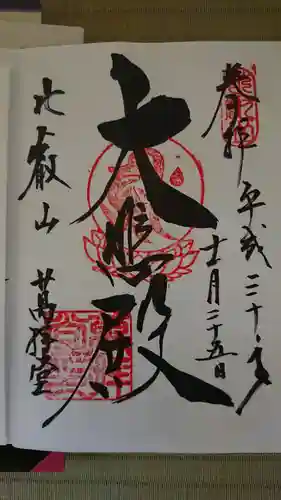 奉拝
平成三十年
十一月二十五日
大悲殿
比叡山
萬拝堂